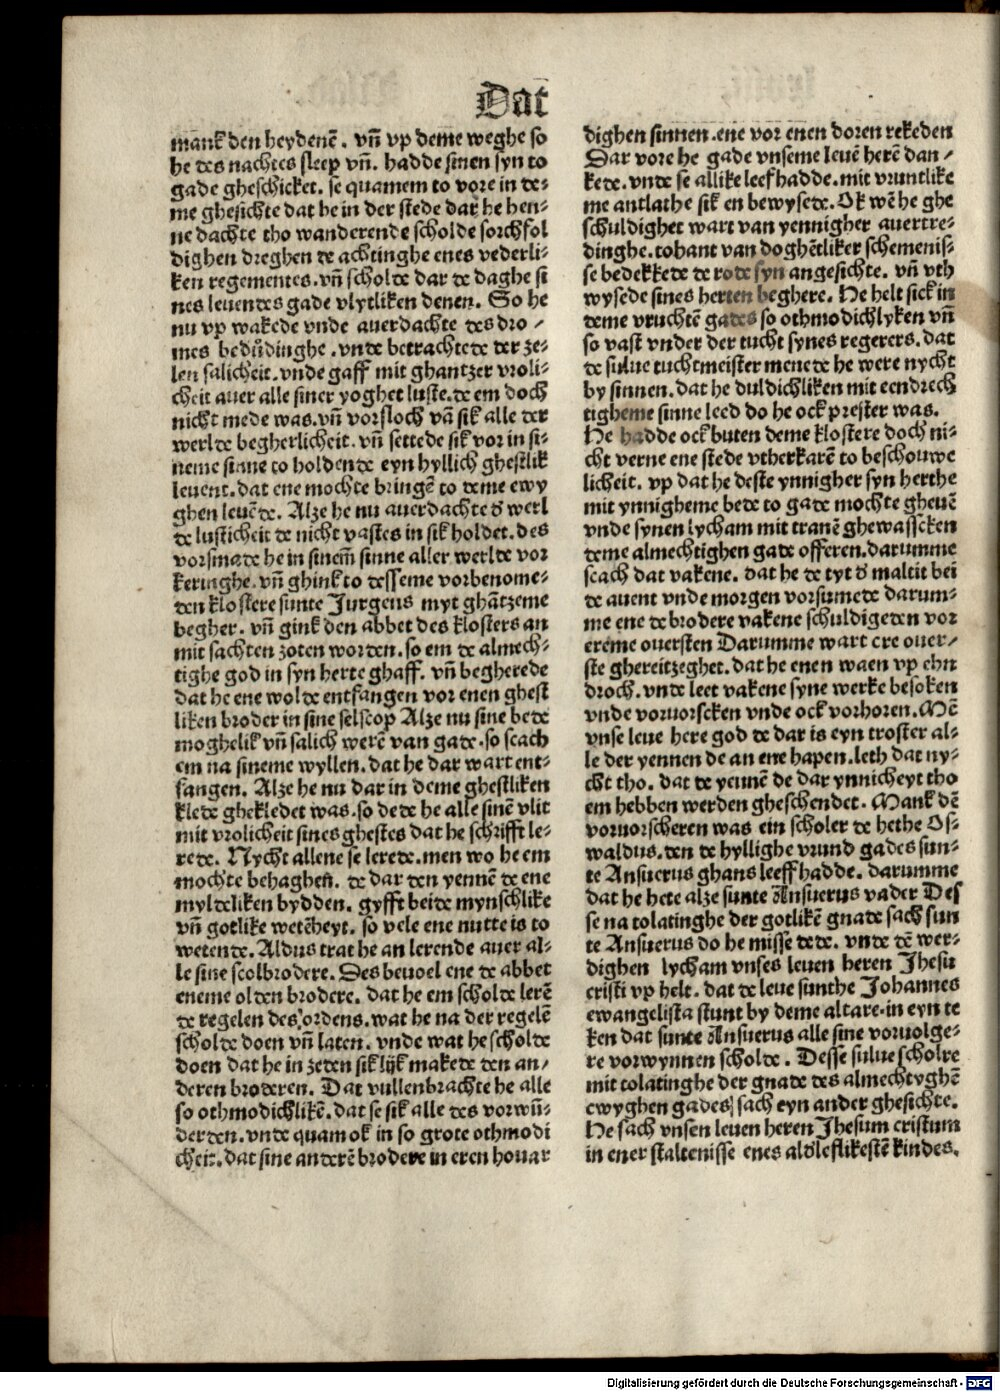 Dat
mank den heydenē . vnͫ vp deme weghe so
he des nachtes sleep vnͫ . hadde sinen syn to
gade gheschicket . se quamem to vore in de⸗
me ghesichte dat he in der stede dar he hen⸗
ne dachte tho wanderende scholde sorchfol
dighen dreghen de achtinghe enes vederli⸗
ken regementes . vnͫ scholde dar de daghe si
nes leuendes gade vlytliken denen . So he
nu vp wakede vnde auerdachte des dro /
mes bedůdinghe . vnde betrachtede der ze⸗
len salicheit . vnde gaff mit ghantzer vroli⸗
cheit auer alle siner yoghet luste . de em doch
nicht mede was . vnͫ vorsloch vā sik alle der
werlde begherlicheit . vnͫ settede sik vor in si⸗
neme sinne to holdende eyn hyllich ghestlik
leuent . dat ene mochte bringē to deme ewy
ghen leuēde . Alze he nu auerdachte đ werl
de lusticheit de nicht vastes in sik holdet . des
vorsmade he in sinem̄ sinne aller werlde vor
keringhe . vnͫ ghink to desseme vorbenome⸗
den klostere sunte Jurgens myt ghātzeme
begher . vnͫ gink den abbet des klosters an
mit sachten zoten worden . so em de almech⸗
tighe god in syn herte ghaff . vnͫ begherede
dat he ene wolde entfangen vor enen ghest
liken broder in sine selscop Alze nu sine bede
moghelik vnͫ salich werē van gade . so scach
em na sineme wyllen . dat he dar wart ent⸗
fangen . Alze he nu dar in deme ghestliken
klede ghekledet was . so dede he alle sinē vlit
mit vrolicheit sines ghestes dat he schrifft le⸗
rede . Nycht allene se lerede . men wo he em
mochte behaghen̄ . de dar den yennē de ene
myldeliken bydden . gyfft beide mynschlike
vnͫ gotlike wetēheyt . so vele ene nutte is to
wetende . Aldus trat he an lerende auer al⸗
le sine scolbrodere . Des beuoel ene de abbet
eneme olden brodere . dat he em scholde lerē
de regelen des ordens . wat he na der regelē
scholde doen vnͫ laten . vnde wat he scholde
doen dat he in zeden sik lijk makede den an /
deren broderen . Dat vullenbrachte he alle
so othmodichlikē . dat se sik alle des vorwū⸗
derden . vnde quam ok in so grote othmodi
cheit . dat sine anderē brodere in eren houar
dighen sinnen . ene vor enen doren rekeden
Dar vore he gade vnseme leuē herē dan /
kede . vnde se allike leef hadde . mit vruntlike
me antlathe sik en bewysede . Ok wē he ghe
schuldighet wart van yennigher auertre⸗
dinghe . tohant van doghētliker schemenis⸗
se bedekkede de rode syn angesichte . vnͫ vth
wysede sines herten beghere . He helt sick in
deme vruchtē gades so othmodichlyken vnͫ
so vast vnder der tucht synes regerers . dat
de sulue tuchtmeister menede he were nycht
by sinnen . dat he duldichliken mit eendrech
tigheme sinne leed do he ock prester was .
He hadde ock buten deme klostere doch ni⸗
cht verne ene stede vtherkarē to beschouwe
licheit . vp dat he deste ynnigher syn herthe
mit ynnigheme bede to gade mochte gheuē
vnde synen lycham mit tranē ghewasscken
deme almechtighen gade offeren . darumme
scach dat vakene . dat he de tyt đ maltit bei
de auent vnde morgen vorsumede darum⸗
me ene de brodere vakene schuldigeden vor
ereme ouersten Darumme wart ere ouer /
ste ghereitzeghet . dat he enen waen vp ehn
droch . vnde leet vakene syne werke besoken
vnde voruorscken vnde ock vorhoren . Mē
vnse leue here god de dar is eyn troster al⸗
le der yennen de an ene hapen . leth dat ny⸗
cht tho . dat de yennē de dar ynnicheyt tho
em hebben werden gheschendet . Mank dē
voruorscheren was ein scholer de hethe Os⸗
waldus . den de hyllighe vrund gades sun⸗
te Ansuerus ghans leeff hadde . darumme
dat he hete alze sunte Ansuerus vader Des
se na tolatinghe der gotlikē gnade sach sun
te Ansuerus do he misse dede . vnde dē wer⸗
dighen lycham vnses leuen heren Jhesu
cristi vp helt . dat de leue sunthe Johannes
ewangelista stunt by deme altare . in eyn te
ken dat sunte Ansuerus alle sine voruolge⸗
re vorwynnen scholde . Desse sulue scholre
mit tolatinghe der gnade des almechtyghē
ewyghen gades sach eyn ander ghesichte .
He sach vnsen leuen heren Jhesum cristum
in ener staltenisse enes alđleflikestē kindes .
Digitalisierung gefördert durch die Deutsche Forschungsgemeinschaft - DFG